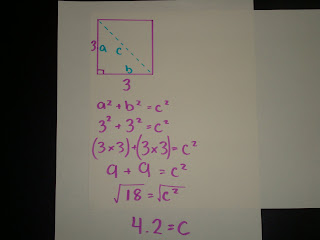 3 a c
b
3
a² + b² = c²
3² + 3² = c²
(3×3)+(3×3)=c²
9 + 9 = c²
√18 = √c²
4.2 = c